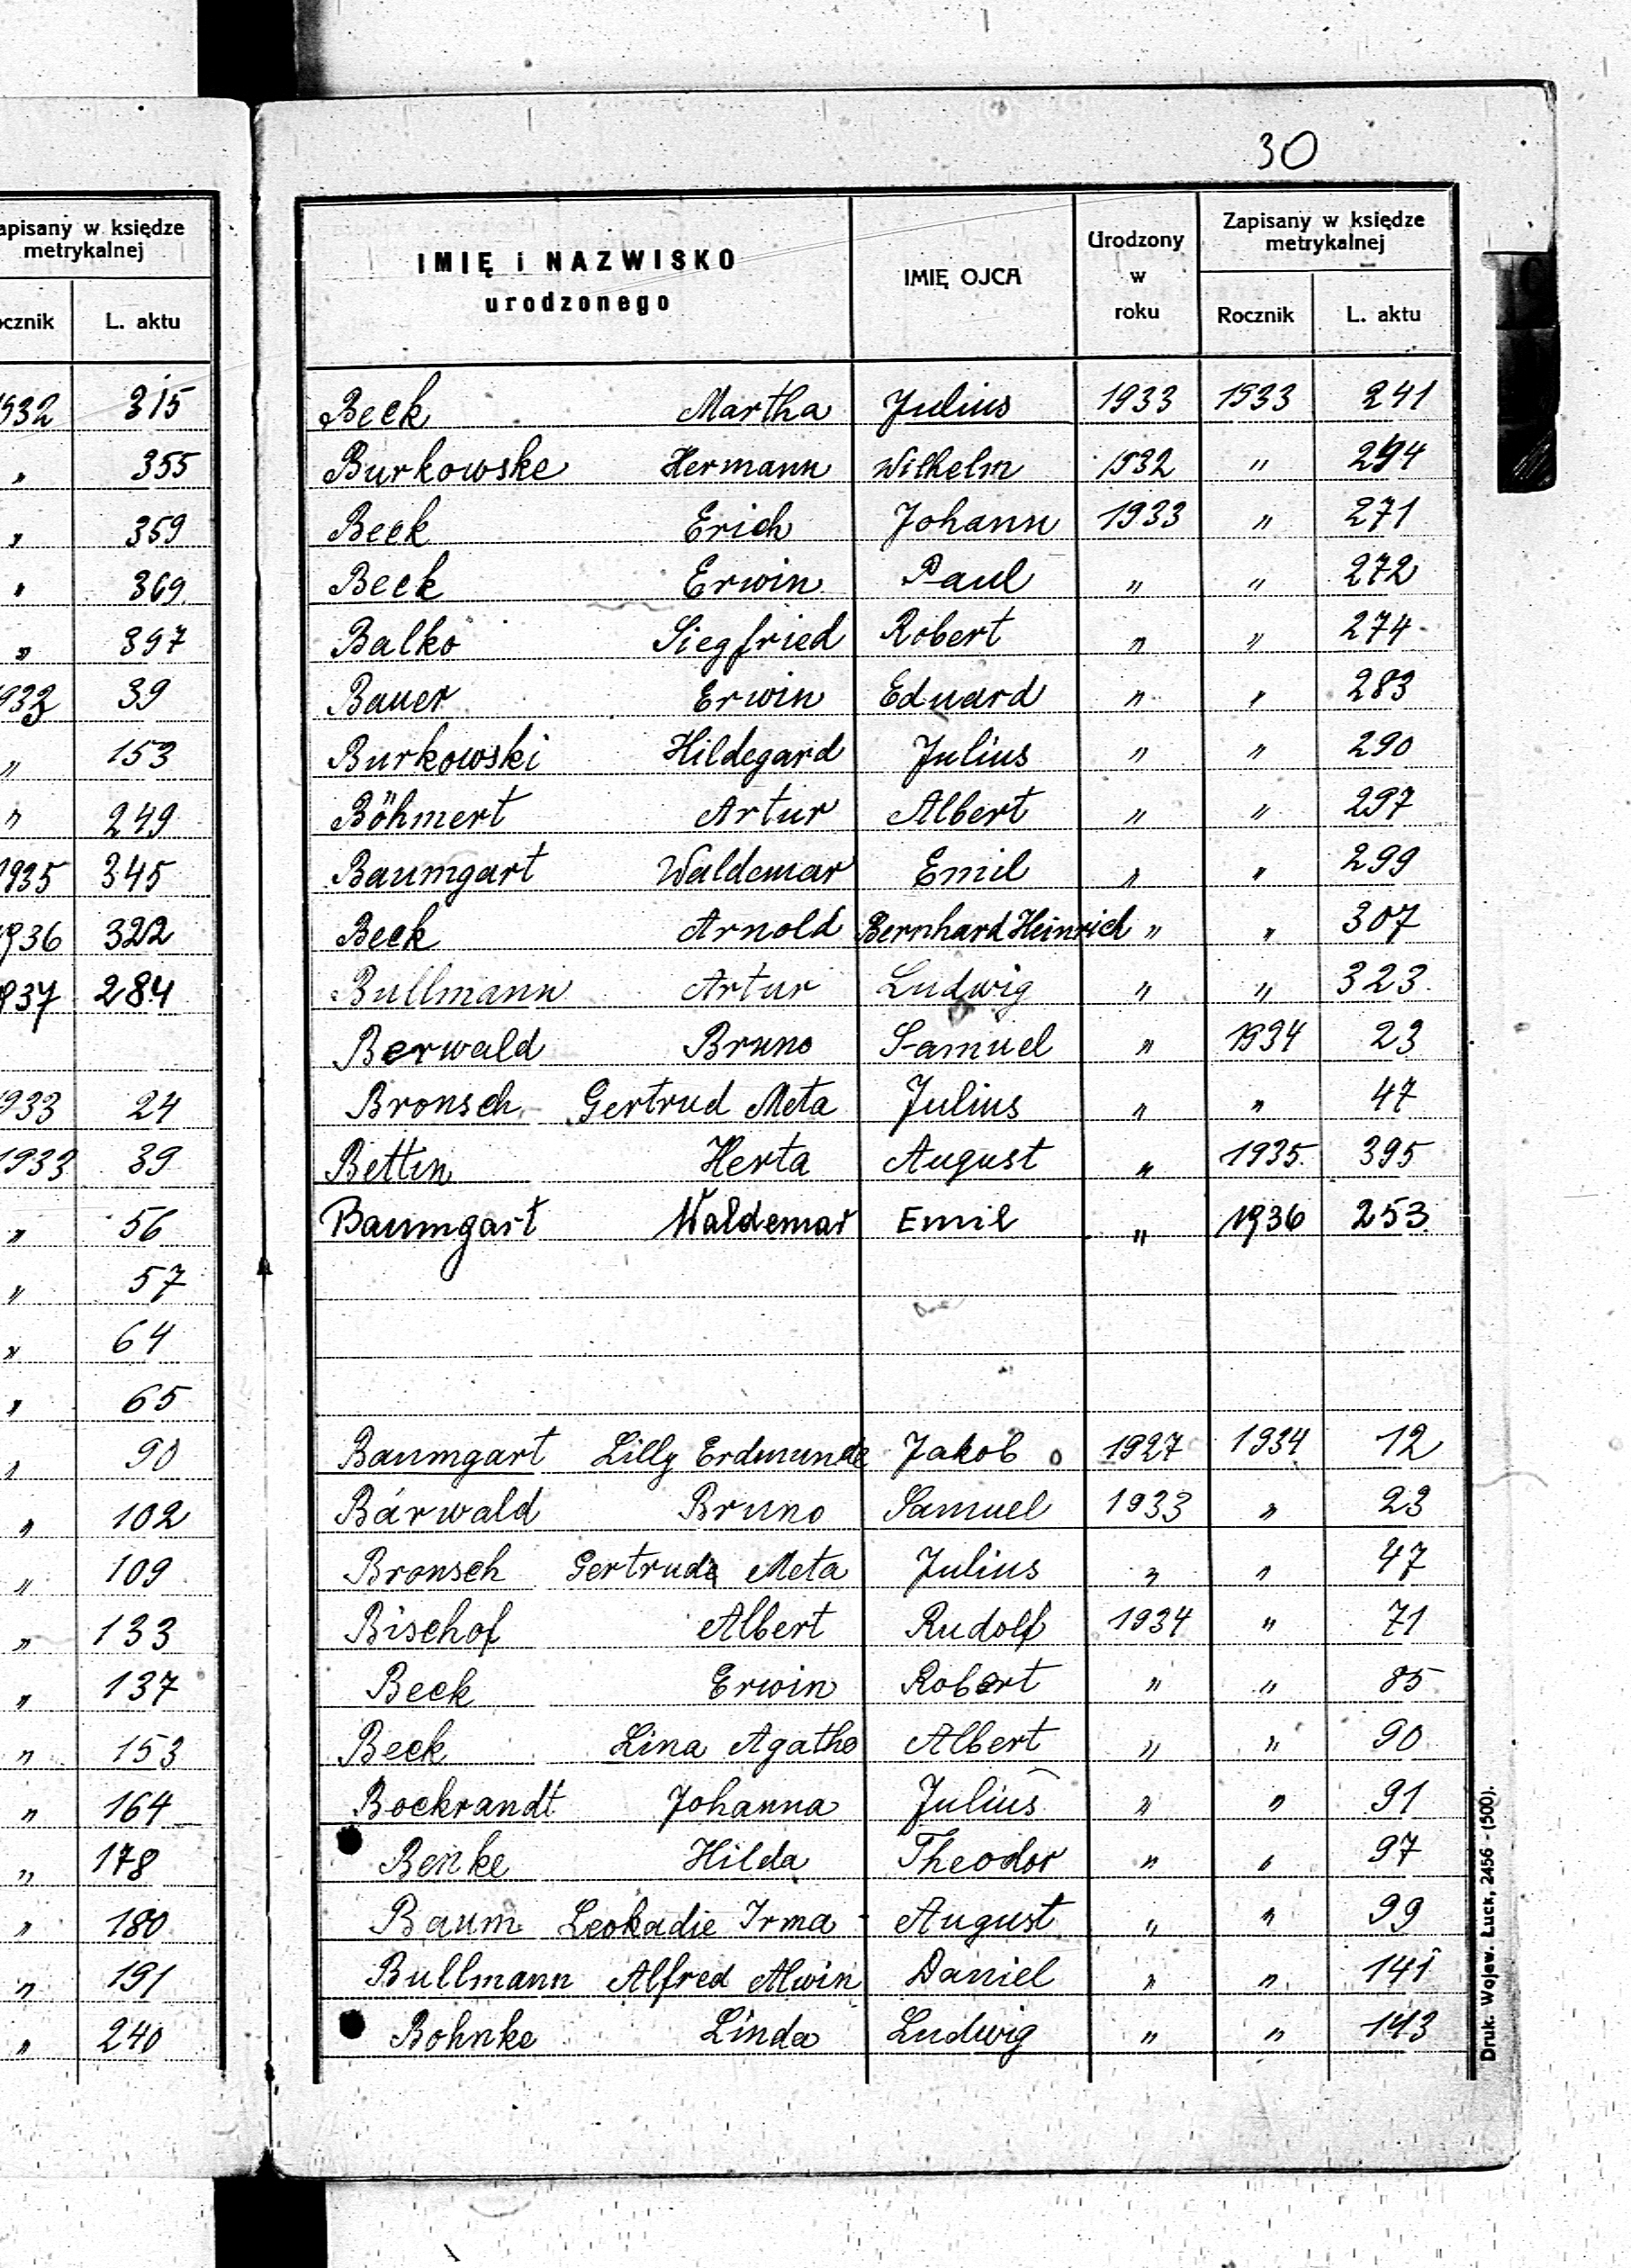 30
apisany w księdze
metrykalnej
ocznik L. aktu
932 315
" 355
" 359
" 369
" 397
933 39
" 153
" 249
1935 345
1936 322
937 284
933 24
1933 39
" 56
" 57
" 64
" 65
" 90
" 102
" 109
" 133
" 137
" 153
" 164
" 178
" 180
" 191
" 240
IMIĘ i NAZWISKO
urodzonego
IMIĘ OJCA
Urodzony
w
roku
Zapisany w księdze
metrykalnej
Rocznik L. aktu
Beck Martha Julius 1933 1933 241
Burkowske Hermann Wilhelm 1932 " 294
Beck Erich Johann 1933 " 271
Beck Erwin Paul " " 272
Balko Siegfried Robert " " 274
Bauer Erwin Eduard " " 283
Burkowski Hildegard Julius " " 290
Böhmert Artur Albert " " 297
Baumgart Waldemar Emil " " 299
Beck Arnold Bernhard Heinrich " " 307
Bullmann Artur Ludwig " " 323
Berwald Bruno Samuel " 1934 23
Bronsch Gertrud Meta Julius " " 47
Bettin Herta August " 1935 395
Baumgart Waldemar Emil " 1936 253
Baumgart Lilly Erdmunde Jakob 1927 1934 12
Bärwald Bruno Samuel 1933 " 23
Bronsch Gertrude Meta Julius " " 47
Bischof Albert Rudolf 1934 " 71
Beck Erwin Robert " " 85
Beck Lina Agathe Albert " " 90
Bockrandt Johanna Julius " " 91
Benke Hilda Theodor " " 97
Baum Leokadie Irma August " " 99
Bullmann Alfred Alwin Daniel " " 141
Bohnke Linda Ludwig " " 143
Druk. Wojew. Łuck, 2456 - (500).